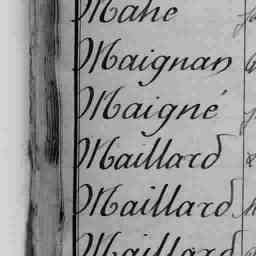 Mahé
Maignan
Maigné
Maillard
Maillard
Maillard